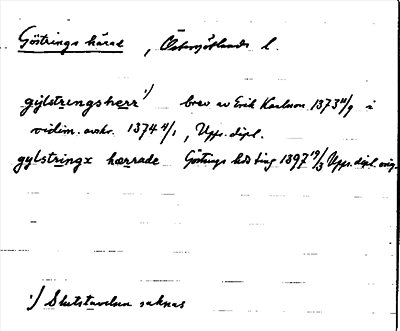 Göstrings härad, Östergötlands l.
gylstringsherr ¹/ brev av Erik Karlsson 1373 11/9 i
vidim. avskr. 1374 4/1, Upps. dipl.
gylstringx hærrade Göstrings hds ting 1397 19/3 Upps. dipl. orig.
¹/ Slutstavelsen saknas